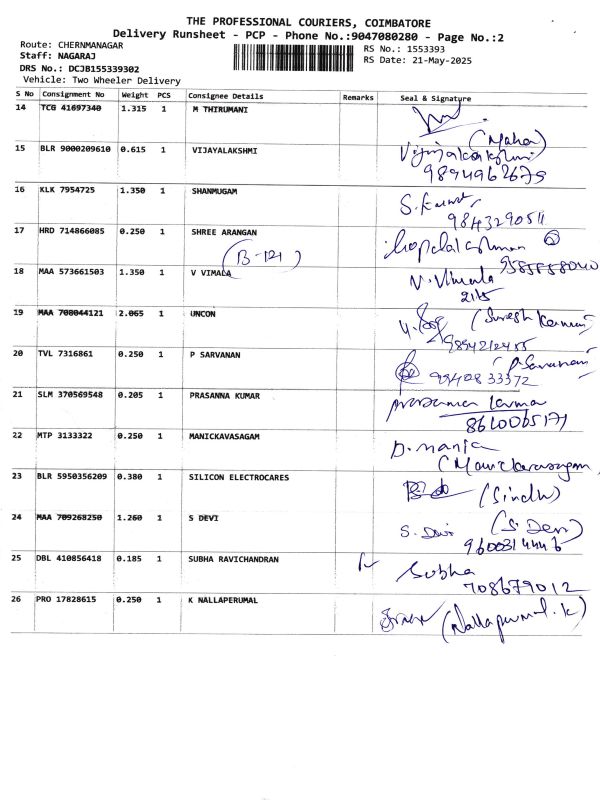 THE PROFESSIONAL COURIERS, COIMBATORE
Delivery Runsheet - PCP - Phone No.:9047080280 - Page No.:2
Route: CHERNMANAGAR
RS No.: 1553393
Staff: NAGARAJ
RS Date: 21-May-2025
DRS No.: DCJB155339302
Vehicle: Two Wheeler Delivery
S No Consignment No Weight PCS Consignee Details Remarks Seal & Signature
14 TCG 41697340 1.315 1 M THIRUMANI
(Maha)
15 BLR 9000209610 0.615 1 VIJAYALAKSHMI Vijayalakshmi
9894962675
16 KLK 7954725 1.350 1 SHANMUGAM S. Kumar
9843290511
17 HRD 714866085 0.250 1 SHREE ARANGAN
(B-121)
18 MAA 573661503 1.350 1 V VIMALA V. Vimala
21/5
19 MAA 708044121 2.065 1 UNCON (Suresh Kumar)
9894212455
20 TVL 7316861 0.250 1 P SARVANAN (P. Saravanan)
9940833372
21 SLM 370569548 0.205 1 PRASANNA KUMAR prasanna kumar
8610065171
22 MTP 3133322 0.250 1 MANICKAVASAGAM
(Manickavasagam
23 BLR 5950356209 0.380 1 SILICON ELECTROCARES (Sindhu)
24 MAA 709268250 1.260 1 S DEVI S. Devi (S. Devi)
9600314446
25 DBL 410856418 0.185 1 SUBHA RAVICHANDRAN Subha
708679012
26 PRO 17828615 0.250 1 K NALLAPERUMAL (Nallaperumal. K)